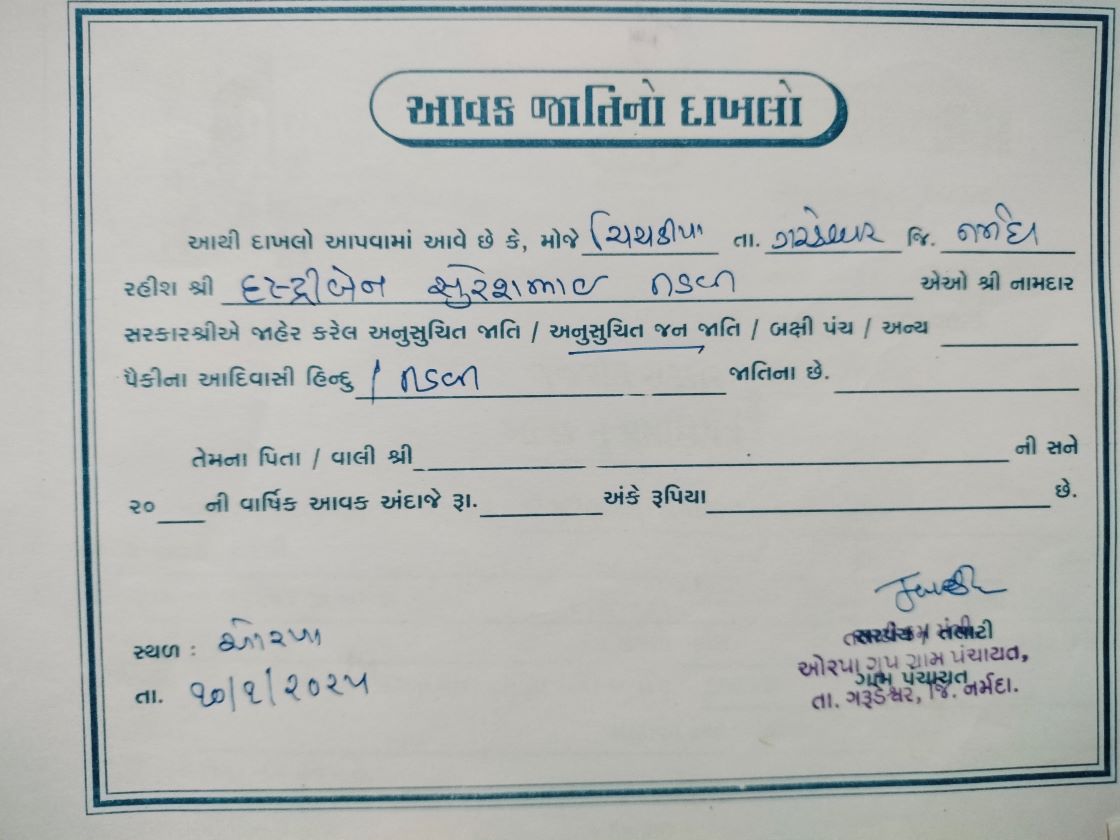 આવક જાતિનો દાખલો
આથી દાખલો આપવામાં આવે છે કે, મોજે ચિચડીપા તા. ગરૂડેશ્વર જિ. નર્મદા
રહીશ શ્રી ઇસ્ટ્રીબેન સુરેશભાઈ તડવી એઓ શ્રી નામદાર
સરકારશ્રીએ જાહેર કરેલ અનુસુચિત જાતિ / અનુસુચિત જન જાતિ / બક્ષી પંચ / અન્ય
પૈકીના આદિવાસી હિન્દુ / તડવી જાતિના છે.
તેમના પિતા / વાલી શ્રી ની સને
૨૦ ની વાર્ષિક આવક અંદાજે રૂા. અંકે રૂપિયા છે.
સ્થળ : ઓરપા
તા. ૧૦/૧/૨૦૨૫
સરપંચ / તલાટી
ઓરપા ગ્રુપ ગ્રામ પંચાયત,
ગ્રામ પંચાયત
તા. ગરૂડેશ્વર, જિ. નર્મદા.